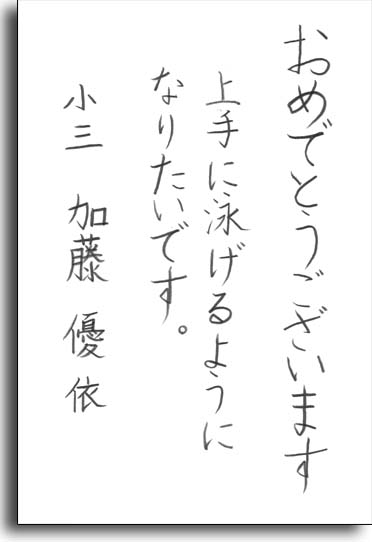 おめでとうございます
上手に泳げるように
なりたいです。
小三 加藤優依